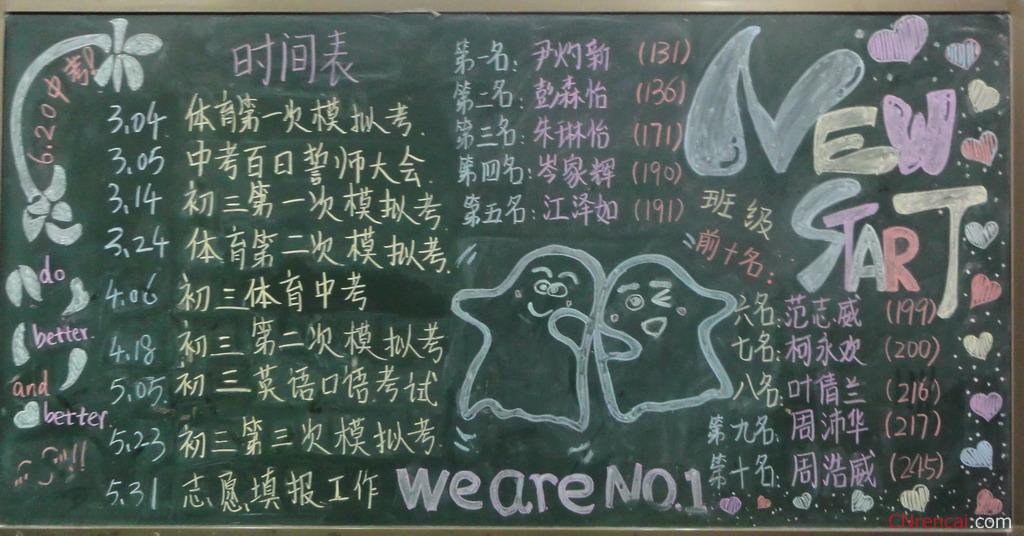 6.20中考!
时间表
3.04 体育第一次模拟考.
3.05 中考百日誓师大会
3.14 初三第一次模拟考
3.24 体育第二次模拟考.
4.06 初三体育中考
4.18 初三第二次模拟考
5.05 初三英语口语考试
5.23 初三第三次模拟考.
5.31 志愿填报工作
do
better.
and
better.
第一名: 尹灼新 (131)
第二名: 彭森怡 (136)
第三名: 朱琳怡 (171)
第四名: 岑家辉 (190)
第五名: 江泽如 (191)
班级
前十名:
六名: 范志威 (199)
七名: 柯永欢 (200)
八名: 叶倩兰 (216)
第九名: 周沛华 (217)
第十名: 周浩威 (245)
NEW
START
we are NO.1
CNrencai.com